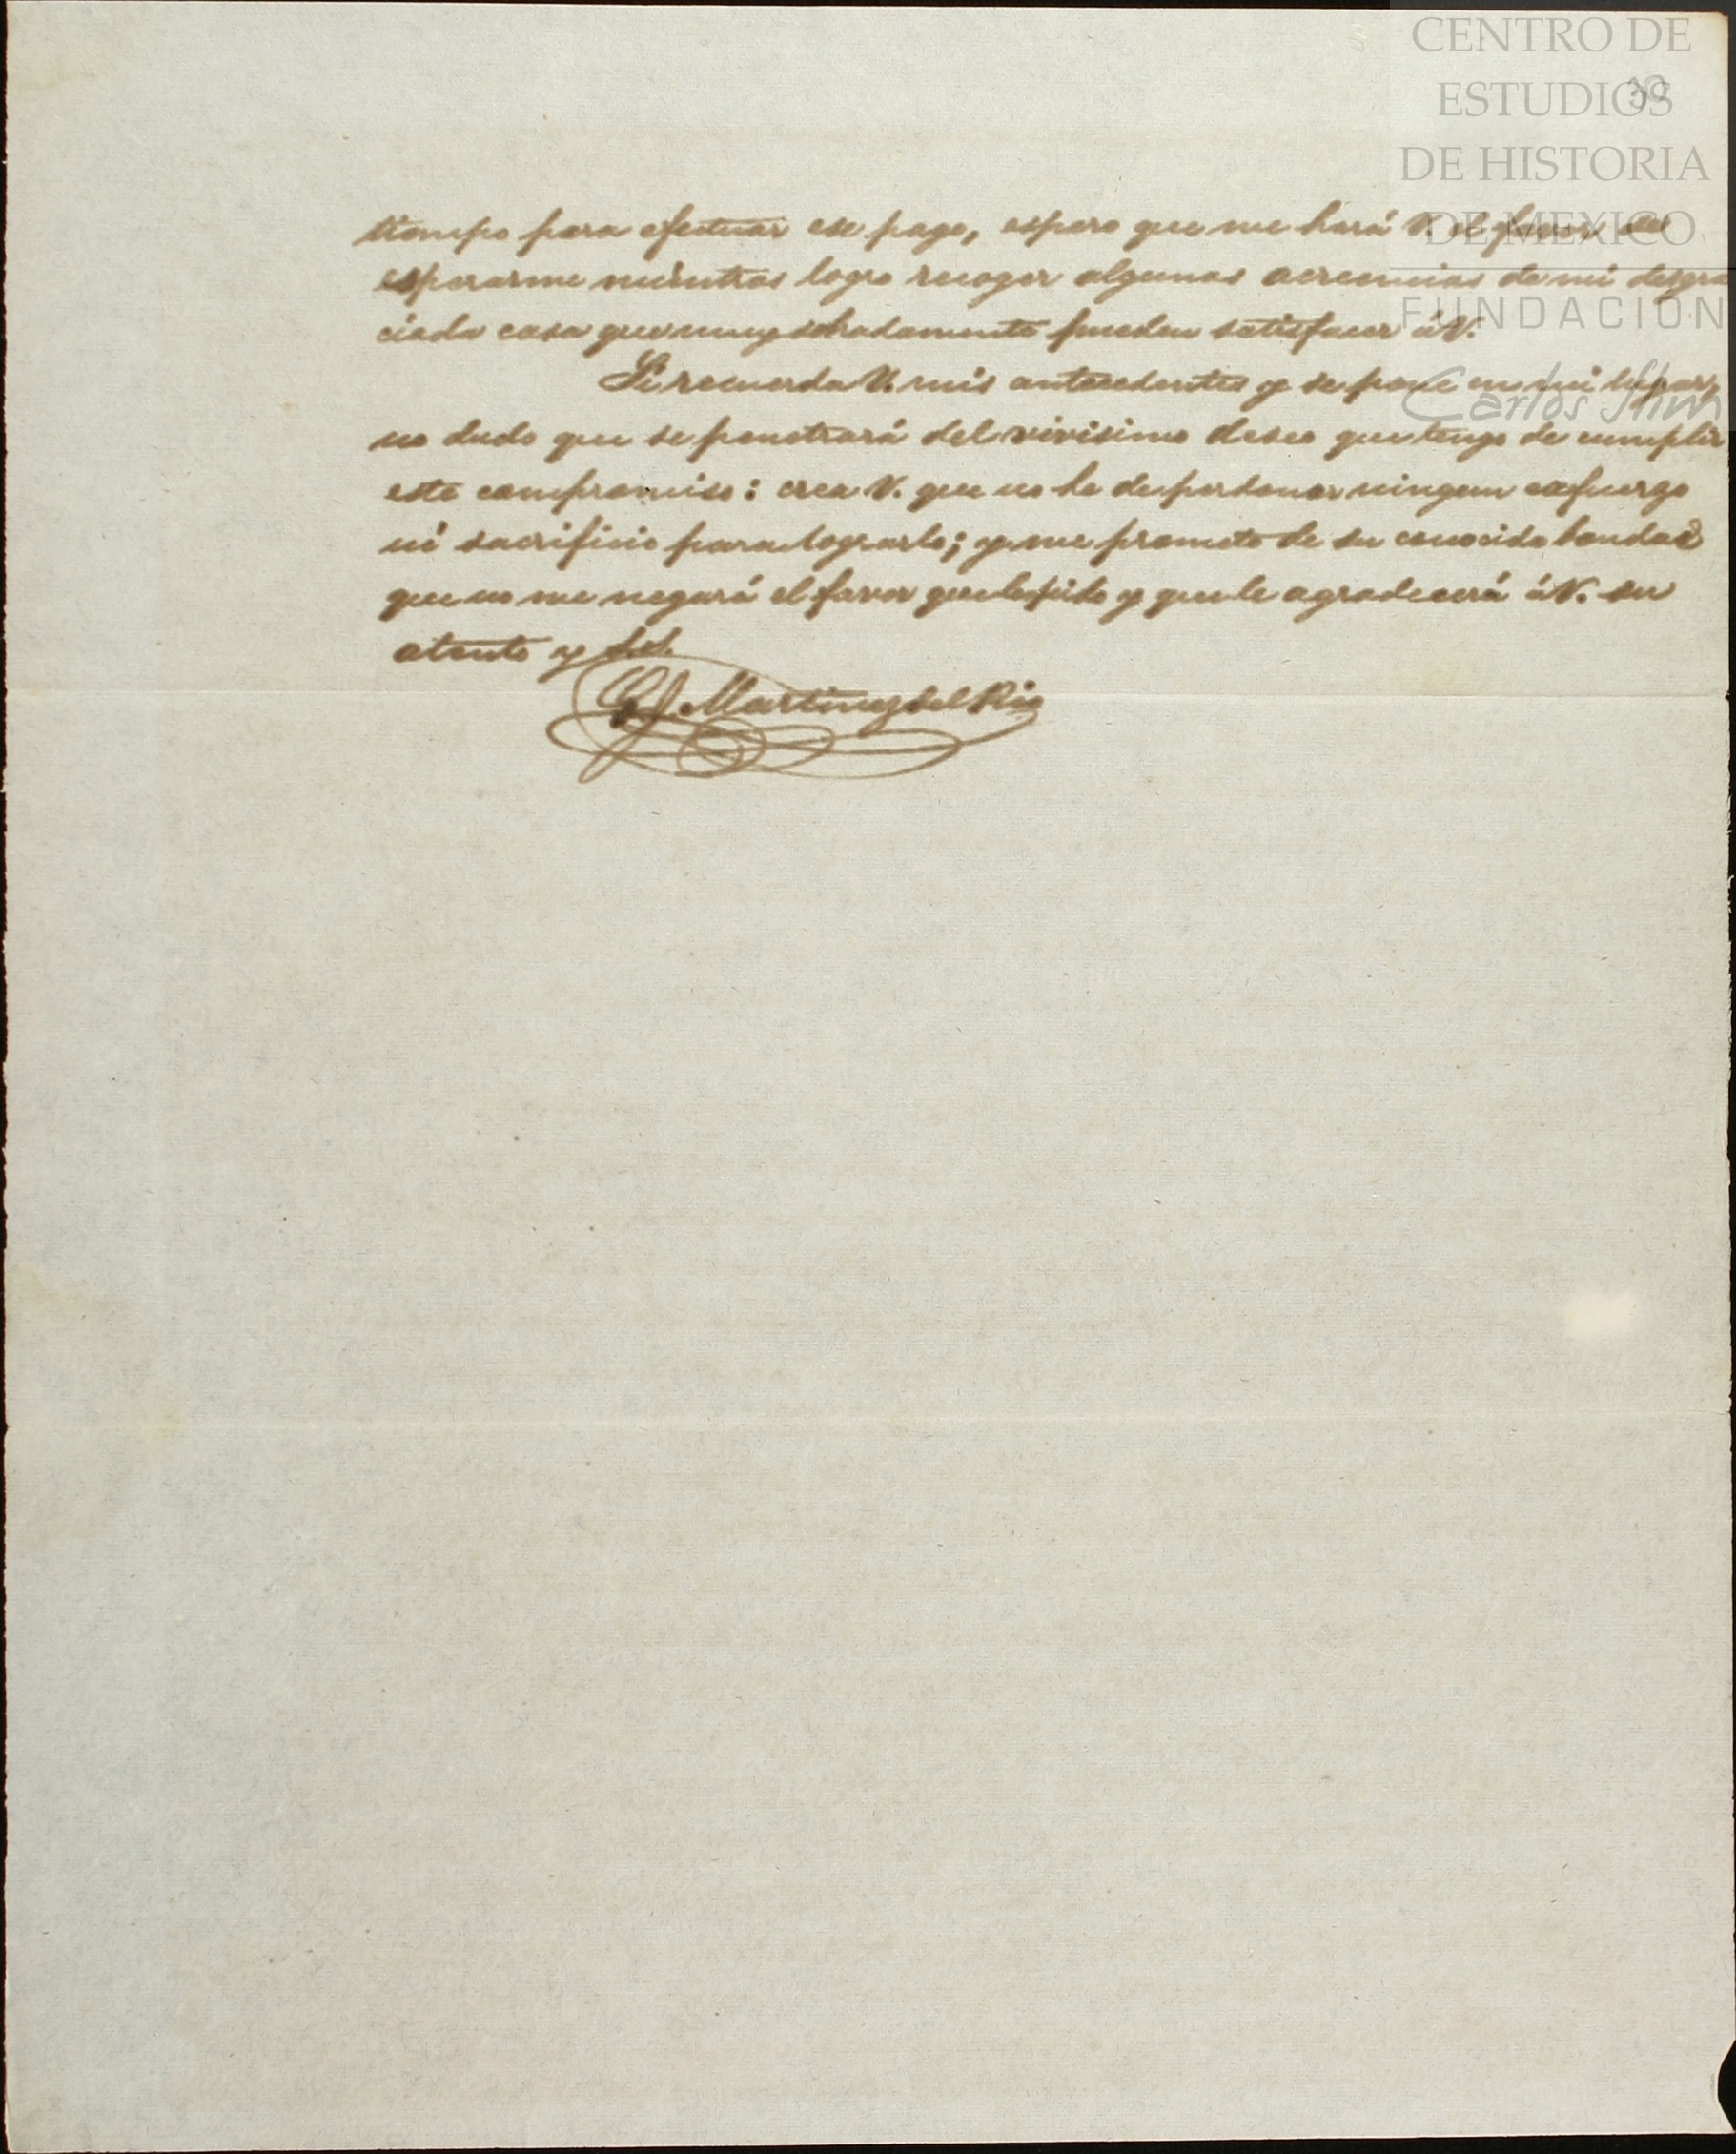 CENTRO DE
ESTUDIOS
DE HISTORIA
DE MEXICO
FUNDACION
Carlos Slim
30
tiempo para efectuar ese pago, espero que me hará V. el favor de
esperarme mientras logro recoger algunas acreencias de mi desgra
ciada casa que muy sobradamente pueden satisfacer á V.
Si recuerda V. mis antecedentes y se pone en mi lugar,
no dudo que se penetrará del vivisimo deseo que tengo de cumplir
este compromiso: crea V. que no he de perdonar ningun esfuerzo
ni sacrificio para lograrlo; y me prometo de su conocida bondad
que no me negará el favor que le pido y que le agradecerá á V. su
atento y S.S.
Martinez del Rio